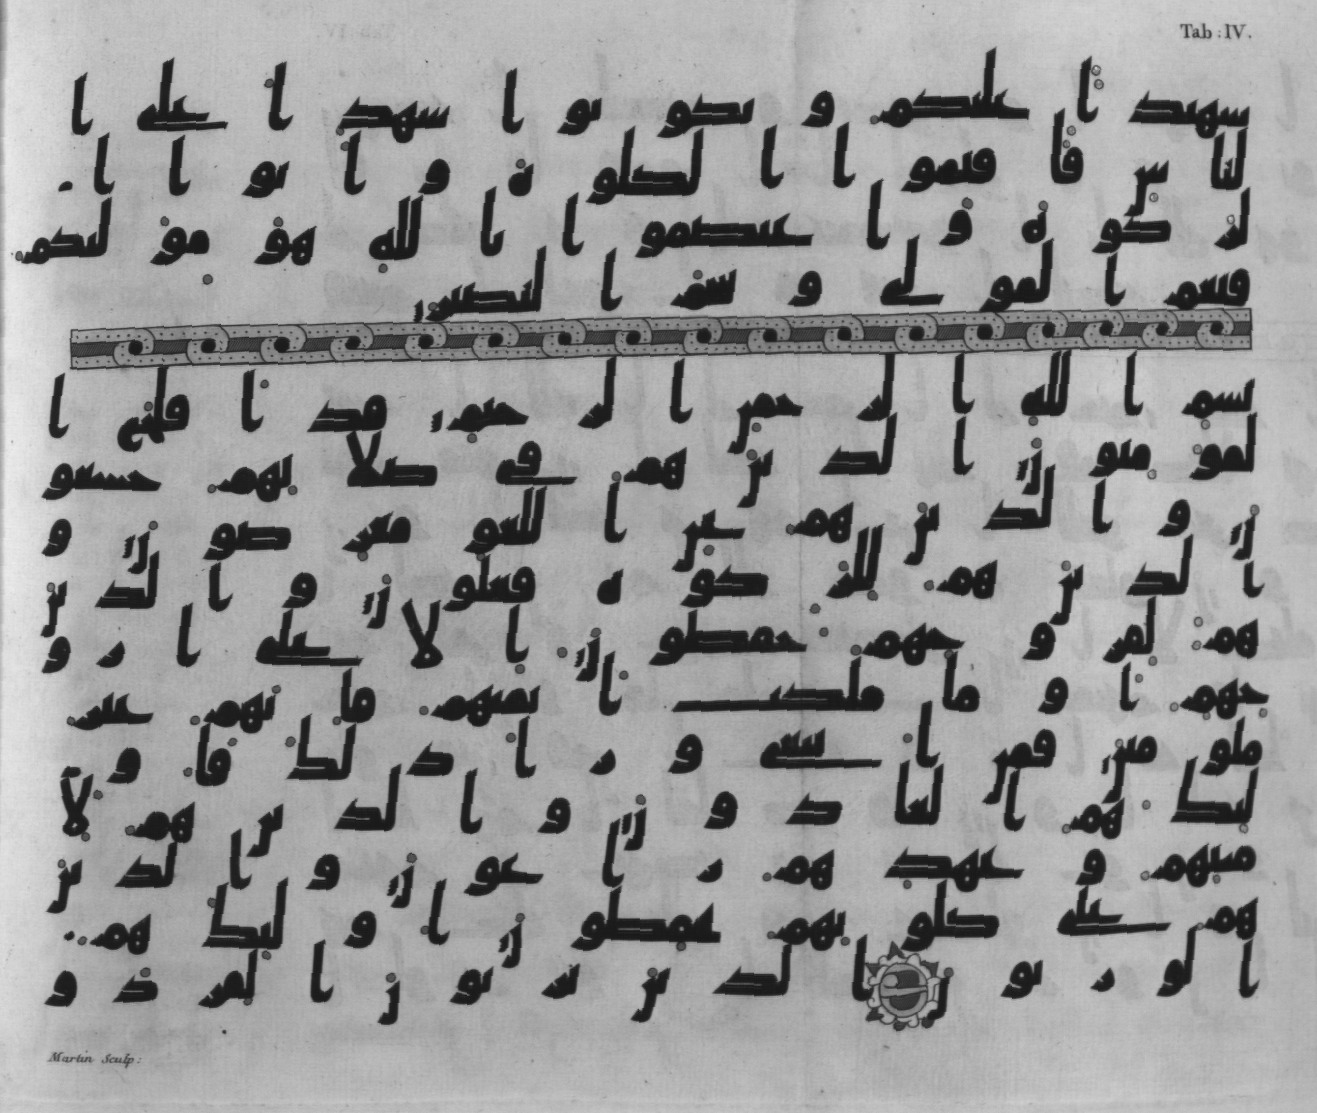 Tab : IV.
شهيدا عليكم وتكونوا شهدا على ا
لناس فاقيموا الصلوة واتوا ا
لزكوة واعتصموا بالله هو موليكم
فنعم المولى ونعم النصير
بسم الله الرحمن الرحيم قد افلح ا
لمومنون الذين هم في صلاتهم خشعو
ن والذين هم عن اللغو معرضون و
الذين هم للزكوة فعلون والذين
هم لفروجهم حفظون الا على ازو
جهم او ما ملكت ايمنهم فانهم غير
ملومين فمن ابتغى ورا ذلك فاو
ليك هم العادون والذين هم لا
منتهم وعهدهم رعون والذين
هم على صلوتهم يحفظون اوليك هم
الورثون الذين يرثون الفردو
Martin Sculp :